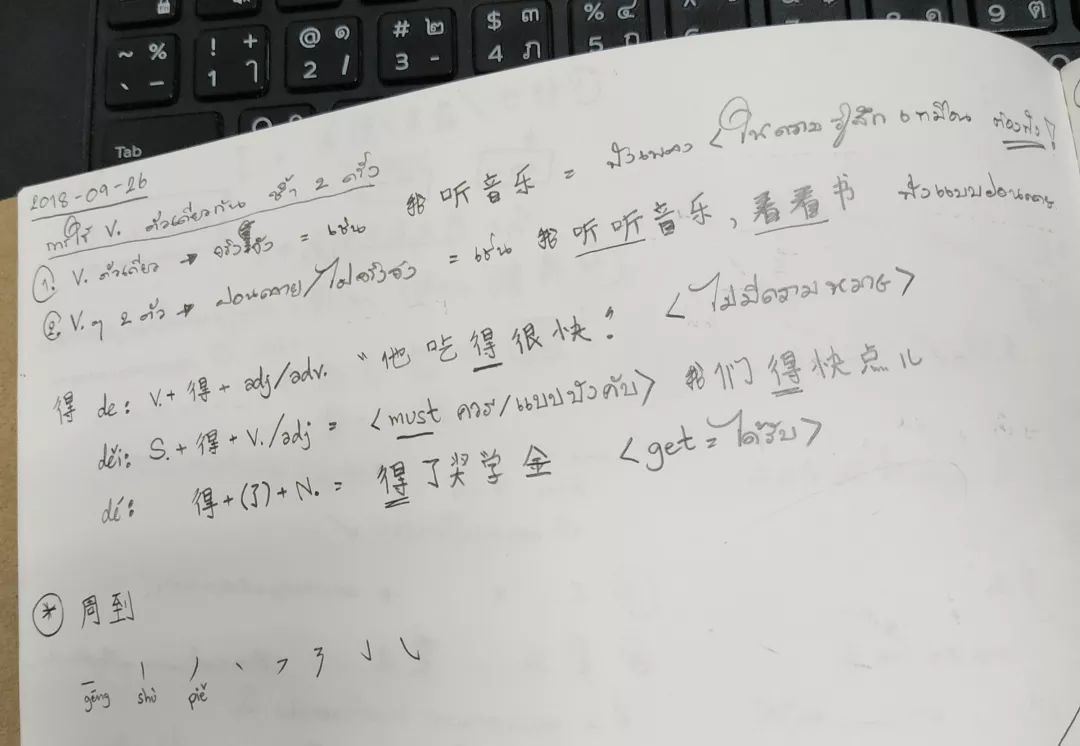 ~ %
! +
1 ๅ
@ ๑
2 /
# ๒
3 -
$ ๓
4 ภ
% ๔
5 ถ
9 ต
Tab
2018-09-26
การใช้ V. ตัวเดียวกัน ซ้ำ 2 ครั้ง
① V. ตัวเดียว → จริงจัง = เช่น 我听音乐 = ฟังเพลง <ให้ความรู้สึกเหมือน ต้องฟัง!
② V.ๆ 2 ตัว → ผ่อนคลาย/ไม่จริงจัง = เช่น 我听听音乐, 看看书 ฟังแบบผ่อนคลาย
得 de: V.+得+adj/adv. "他吃得很快" <ไม่มีความหมาย>
děi: S.+得+V./adj = <must ควร/แบบบังคับ> 我们得快点儿
dé: 得+(了)+N. = 得了奖学金 <get = ได้รับ>
* 周到
一 丨 丿 丶
shù piě